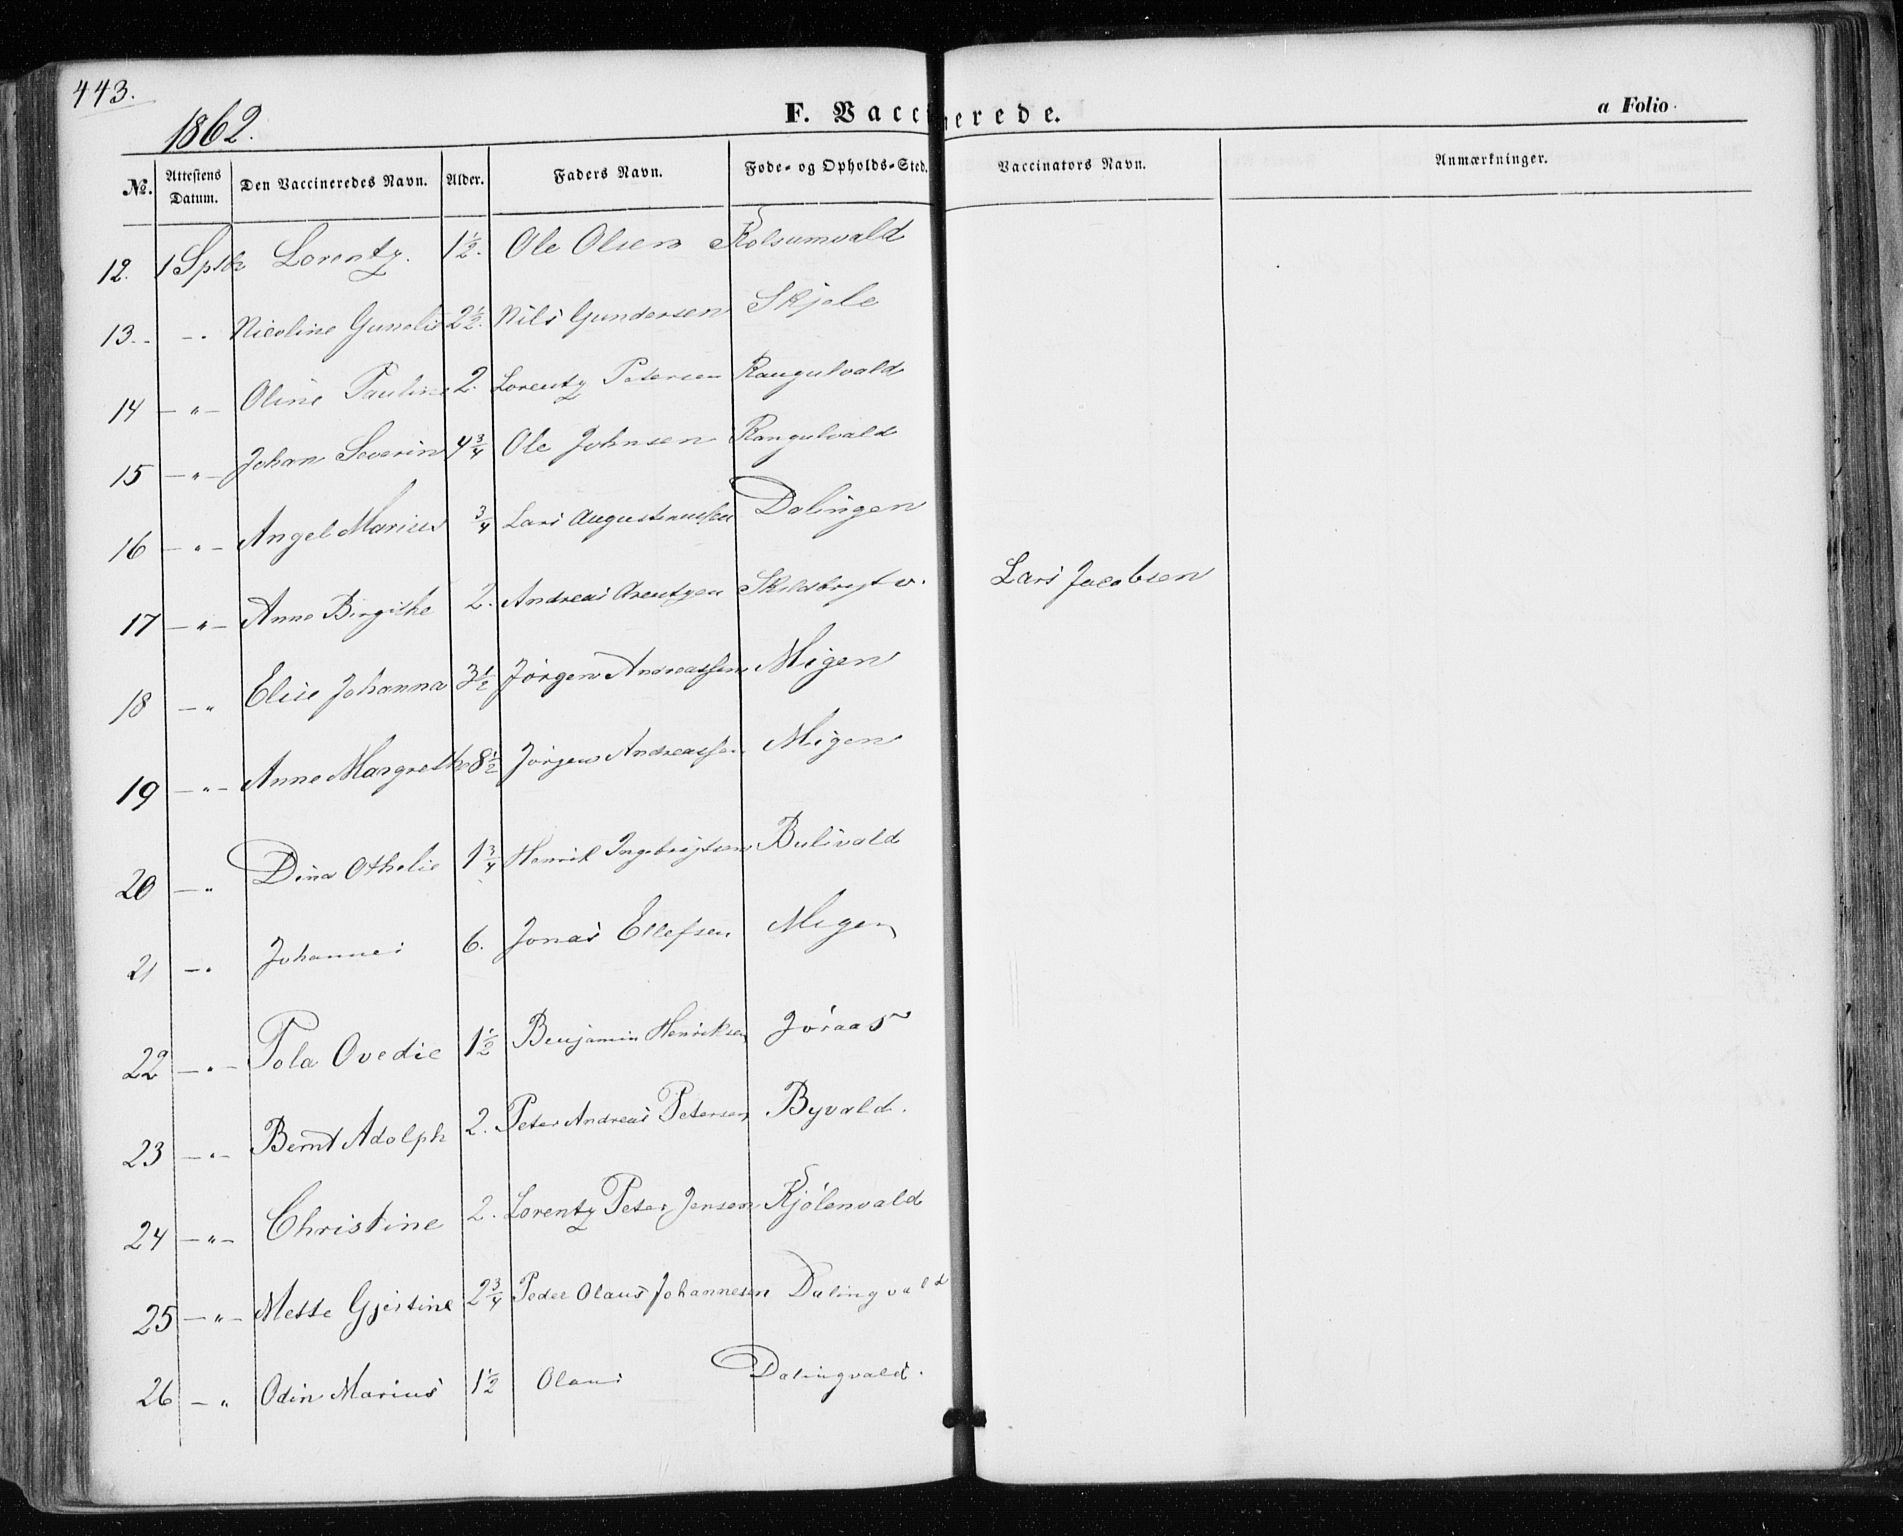 443.
1862.
F. Vaccinerede.
a Folio
No. Attestens Datum. Den Vaccineredes Navn. Alder. Faders Navn. Føde- og Opholds-Sted. Vaccinators Navn. Anmærkninger.
12. 1 Sptbr Lorentz. 1½. Ole Olsen Kolsumvald
13. -"- Nicoline Gunelie 2½. Nils Gundersen Skjele
14 -"- Oline Pauline 2. Lorentz Petersen Rangulvald
15 -"- Johan Severin 4¾ Ole Johnsen Rangulvald
16 -"- Angel Marius ¾ Lars Augustinussen Dalingen
17 -"- Anne Birgithe 2. Andreas Arentzen Skildbregt v. Lars Jacobsen
18 -" Elise Johanna 3½ Jørgen Andreassen Migen
19 -"- Anne Margrethe 8½ Jørgen Andreassen Migen
20 -" Dina Othelie 1¾ Henrik Ingebrigtsen Bulivald
21 -" Johannes 6. Jonas Ellefsen Migen
22 -"- Tola Ovedie 1½ Benjamin Henriksen Jøraas
23 -"- Bernt Adolph 2. Peter Andreas Petersen Byvald.
24 -"- Christine 2. Lorentz Peter Jensen Kjølenvald
25 -"- Mette Gjertine 2¾ Peder Olaus Johannesen Dalingvald
26 -" Odin Marius 1½ Olaus Dalingvald.